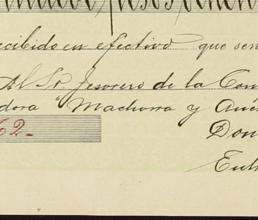 pesos
ecibido en efectivo que sen
Al Sr. Tesorero de la Com
dora "Machorra y Aué
62_ Don
Eul